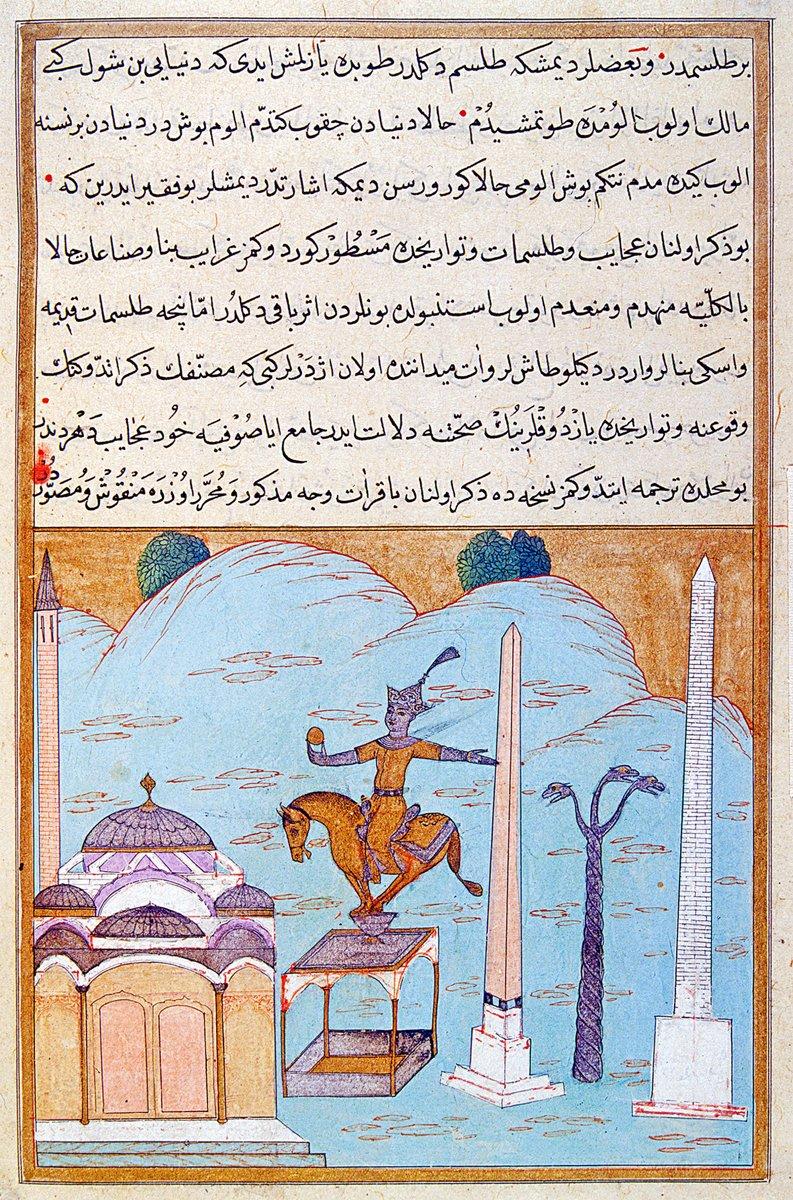 برطلسمدر وبعضلر دیمشکه طلسم دکلدر طوبده یازلمش ایدی که دنیایی بن شول کبی
مالک اولوب الومده طوتمشیدم حالا دنیادن چقوب کتدم الوم بوش در دنیادن برنسنه
الوب کیده مدم نتکم بوش الومی حالا کورورسن دیمکه اشارتدر دیمشلر بو فقیر ایدرین که
بو ذکر اولنان عجایب وطلسمات وتواریخده مسطور کوردوکمز غرایب بنا وصناعات حالا
بالکلیه منهدم ومنعدم اولوب استنبولده بونلردن اثر باقی دکلدر اما نیچه طلسمات قدیمه
واسکی بنالر واردر دیکیلو طاشلر وات میداننده اولان اژدرلر کبی که مصنفک ذکر اتدوکنک
وقوعنه وتواریخده یازدوقلرینک صحتنه دلالت ایدر جامع ایاصوفیه خود عجایب دهردندر
بو محلده ترجمه ایتدوکمز نسخه ده ذکر اولنان باقرات وجه مذکور ومحرر اوزره منقوش ومصور
در